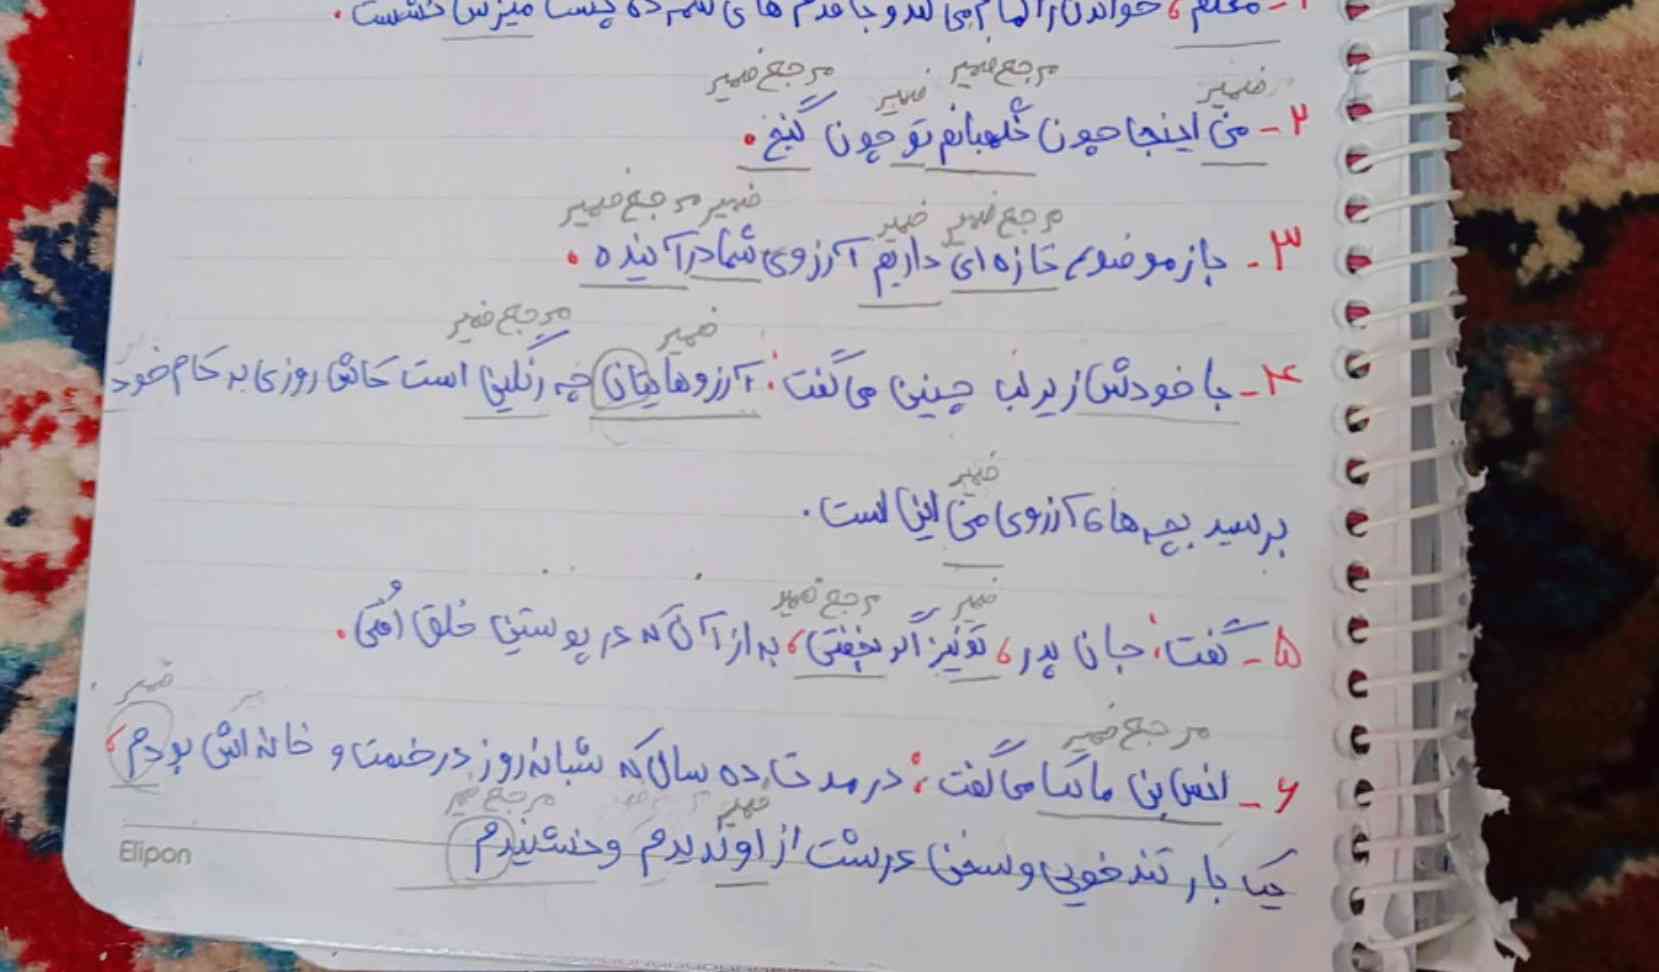 ۱- معلم، خواندن را تمام می کند و با قدم های شمرده پشت میزش نشست.
مرجع ضمیر ضمیر مرجع ضمیر ضمیر
۲- من اینجا چون نگهبانم تو چون گنج.
مرجع ضمیر ضمیر ضمیر مرجع ضمیر
۳- باز موضوع تازه ای داریم آرزوی شما در آینده.
ضمیر مرجع ضمیر
۴- با خودش زیر لب چنین می گفت: آرزوهایتان چه رنگین است کاش روزی به کام خود
ضمیر
برسید بچه ها، آرزوی من این است.
ضمیر مرجع ضمیر
۵- گفت: جان پدر، تو نیز اگر بخفتی، به از آن که در پوستین خلق اُفتی.
مرجع ضمیر ضمیر
۶- انس بن مالک می گفت: در مدت ده سال که شبانه روز در خدمت و خانه اش بودم،
ضمیر مرجع ضمیر
یک بار تند خویی و سخن درشت از او ندیدم و نشنیدم
Elipon